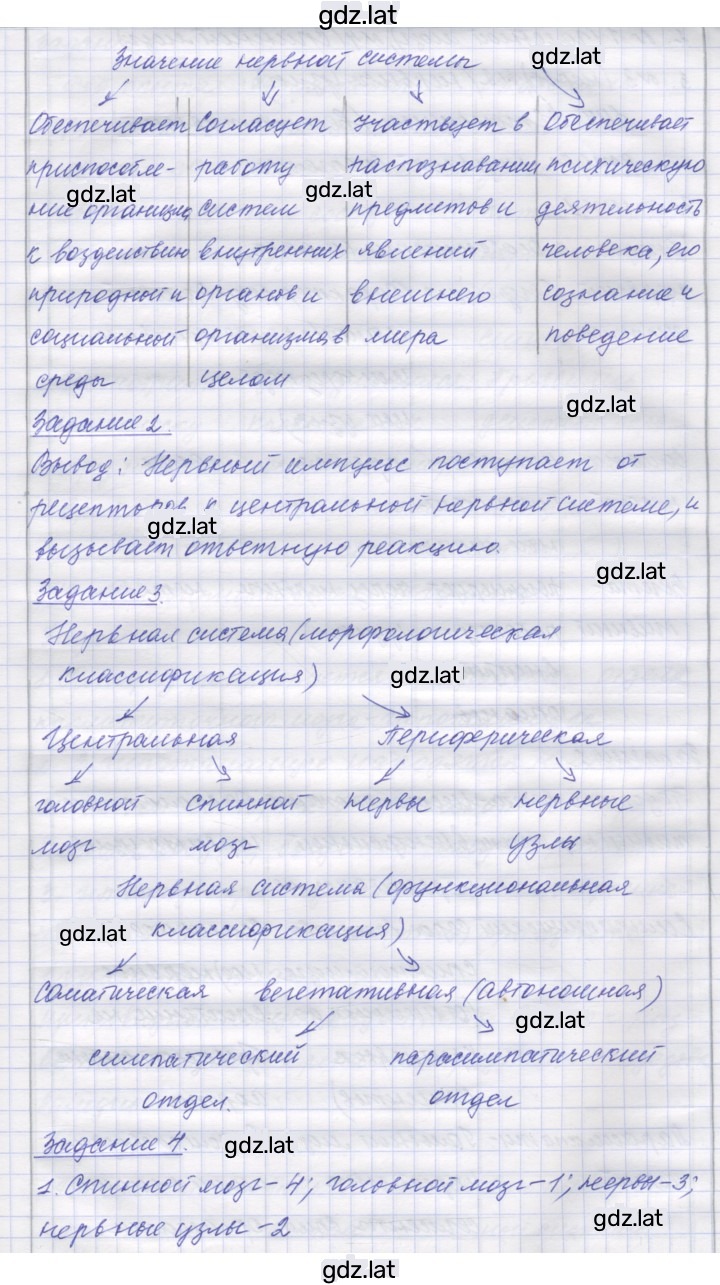 gdz.lat
Значение нервной системы gdz.lat
Обеспечивает Согласует Участвует в Обеспечивает
приспособле- работу распознавании психическую
gdz.lat gdz.lat
ние организма систем предметов и деятельность
к воздействию внутренних явлений человека, его
природной и органов и внешнего сознание и
социальной организма в мира поведение
среды целом
gdz.lat
Задание 2.
Вывод: Нервный импульс поступает от
рецепторов к центральной нервной системе, и
gdz.lat
вызывает ответную реакцию.
gdz.lat
Задание 3.
Нервная система (морфологическая
классификация) gdz.lat
Центральная Периферическая
головной спинной нервы нервные
мозг мозг узлы
Нервная система (функциональная
gdz.lat классификация)
Соматическая вегетативная (автономная)
gdz.lat
симпатический парасимпатический
отдел. отдел
Задание 4. gdz.lat
1. Спинной мозг - 4; головной мозг - 1; нервы - 3;
нервные узлы - 2 gdz.lat
gdz.lat